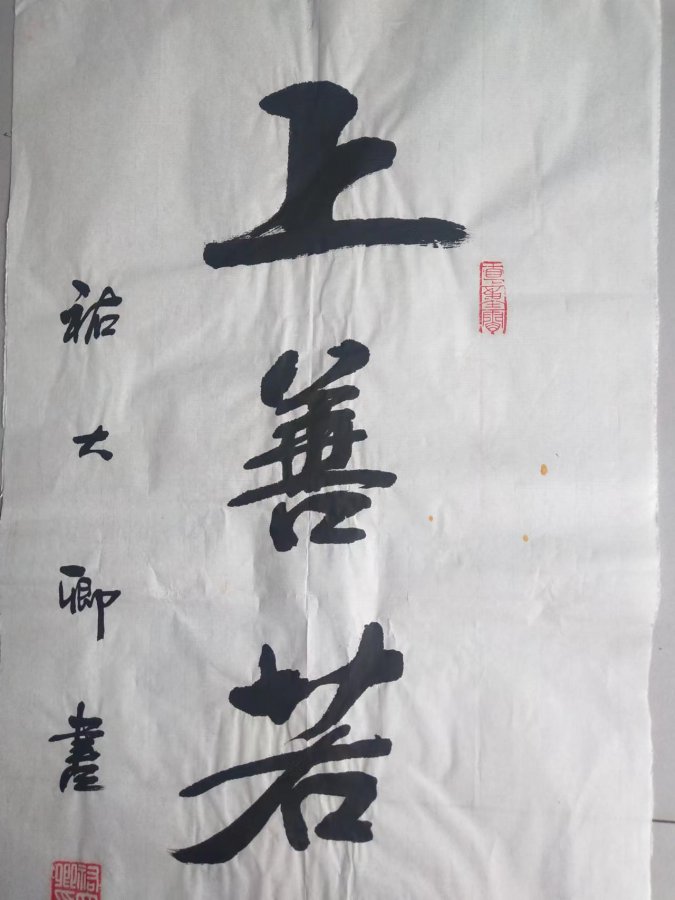 上善若
祐大卿書